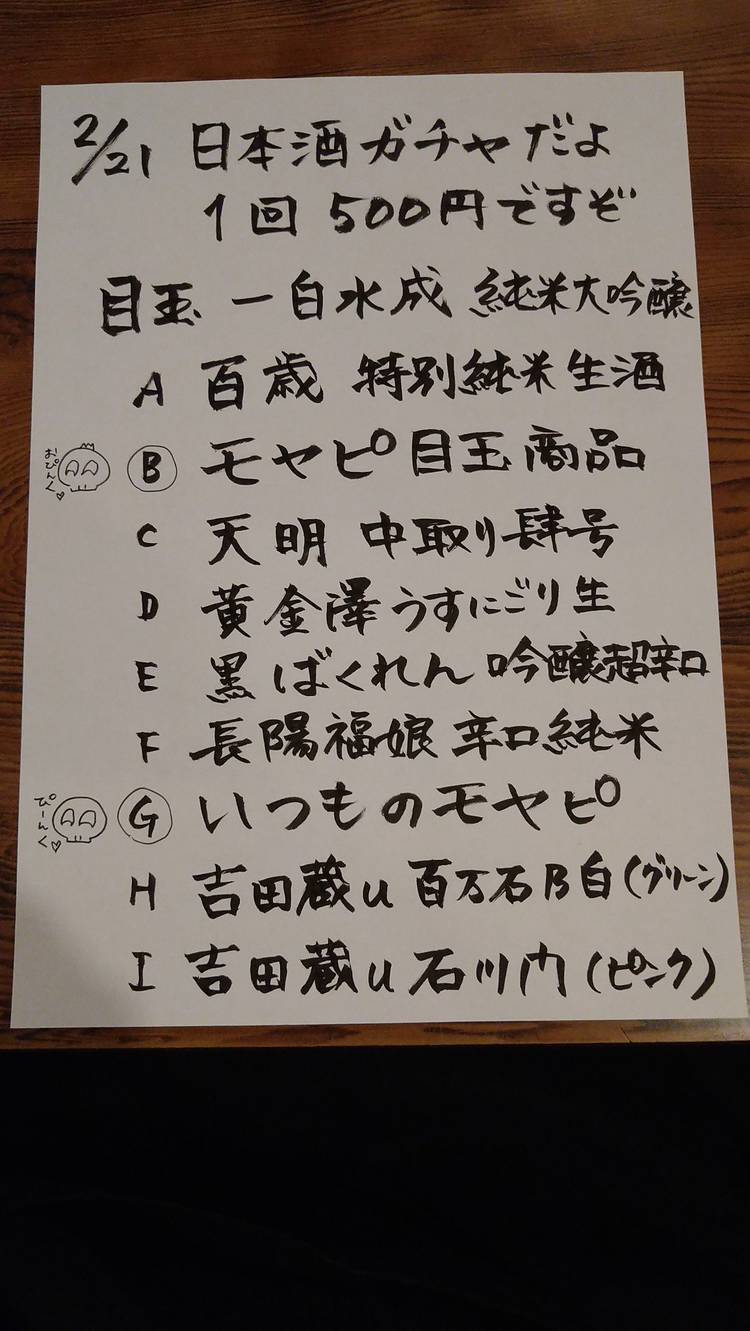 2/21 日本酒ガチャだよ
1回 500円ですぞ
目玉 一白水成 純米大吟醸
A 百歳 特別純米生酒
おぴんく♡ B モヤピ目玉商品
C 天明 中取り肆号
D 黄金澤うすにごり生
E 黒ばくれん 吟醸超辛口
F 長陽福娘 辛口純米
ぴーんく♡ G いつものモヤピ
H 吉田蔵u 百万石B白(グリーン)
I 吉田蔵u 石川門(ピンク)